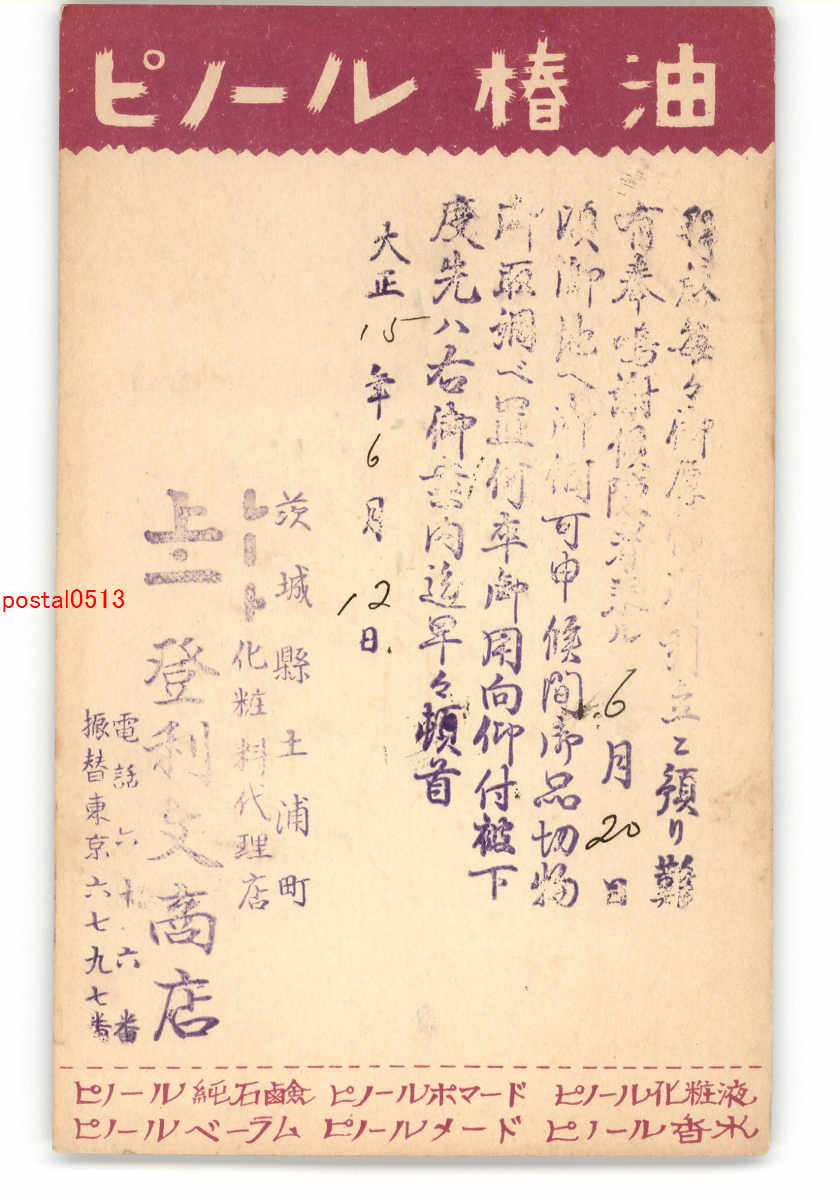 ピノール 椿油
拝啓毎々御厚 引立ニ預り難
有奉鳴謝候陳者来ル6月20日
頃御地へ御伺可申候間御品切物
御取調べ置何卒御用向仰付被下
度先ハ右御案内迄早々頓首
大正15年6月12日
茨城縣土浦町
レート化粧料代理店
登利文商店
電話六十六番
振替東京六七九七番
postal0513
ピノール純石鹼 ピノールポマード ピノール化粧液
ピノールベーラム ピノールメード ピノール香水